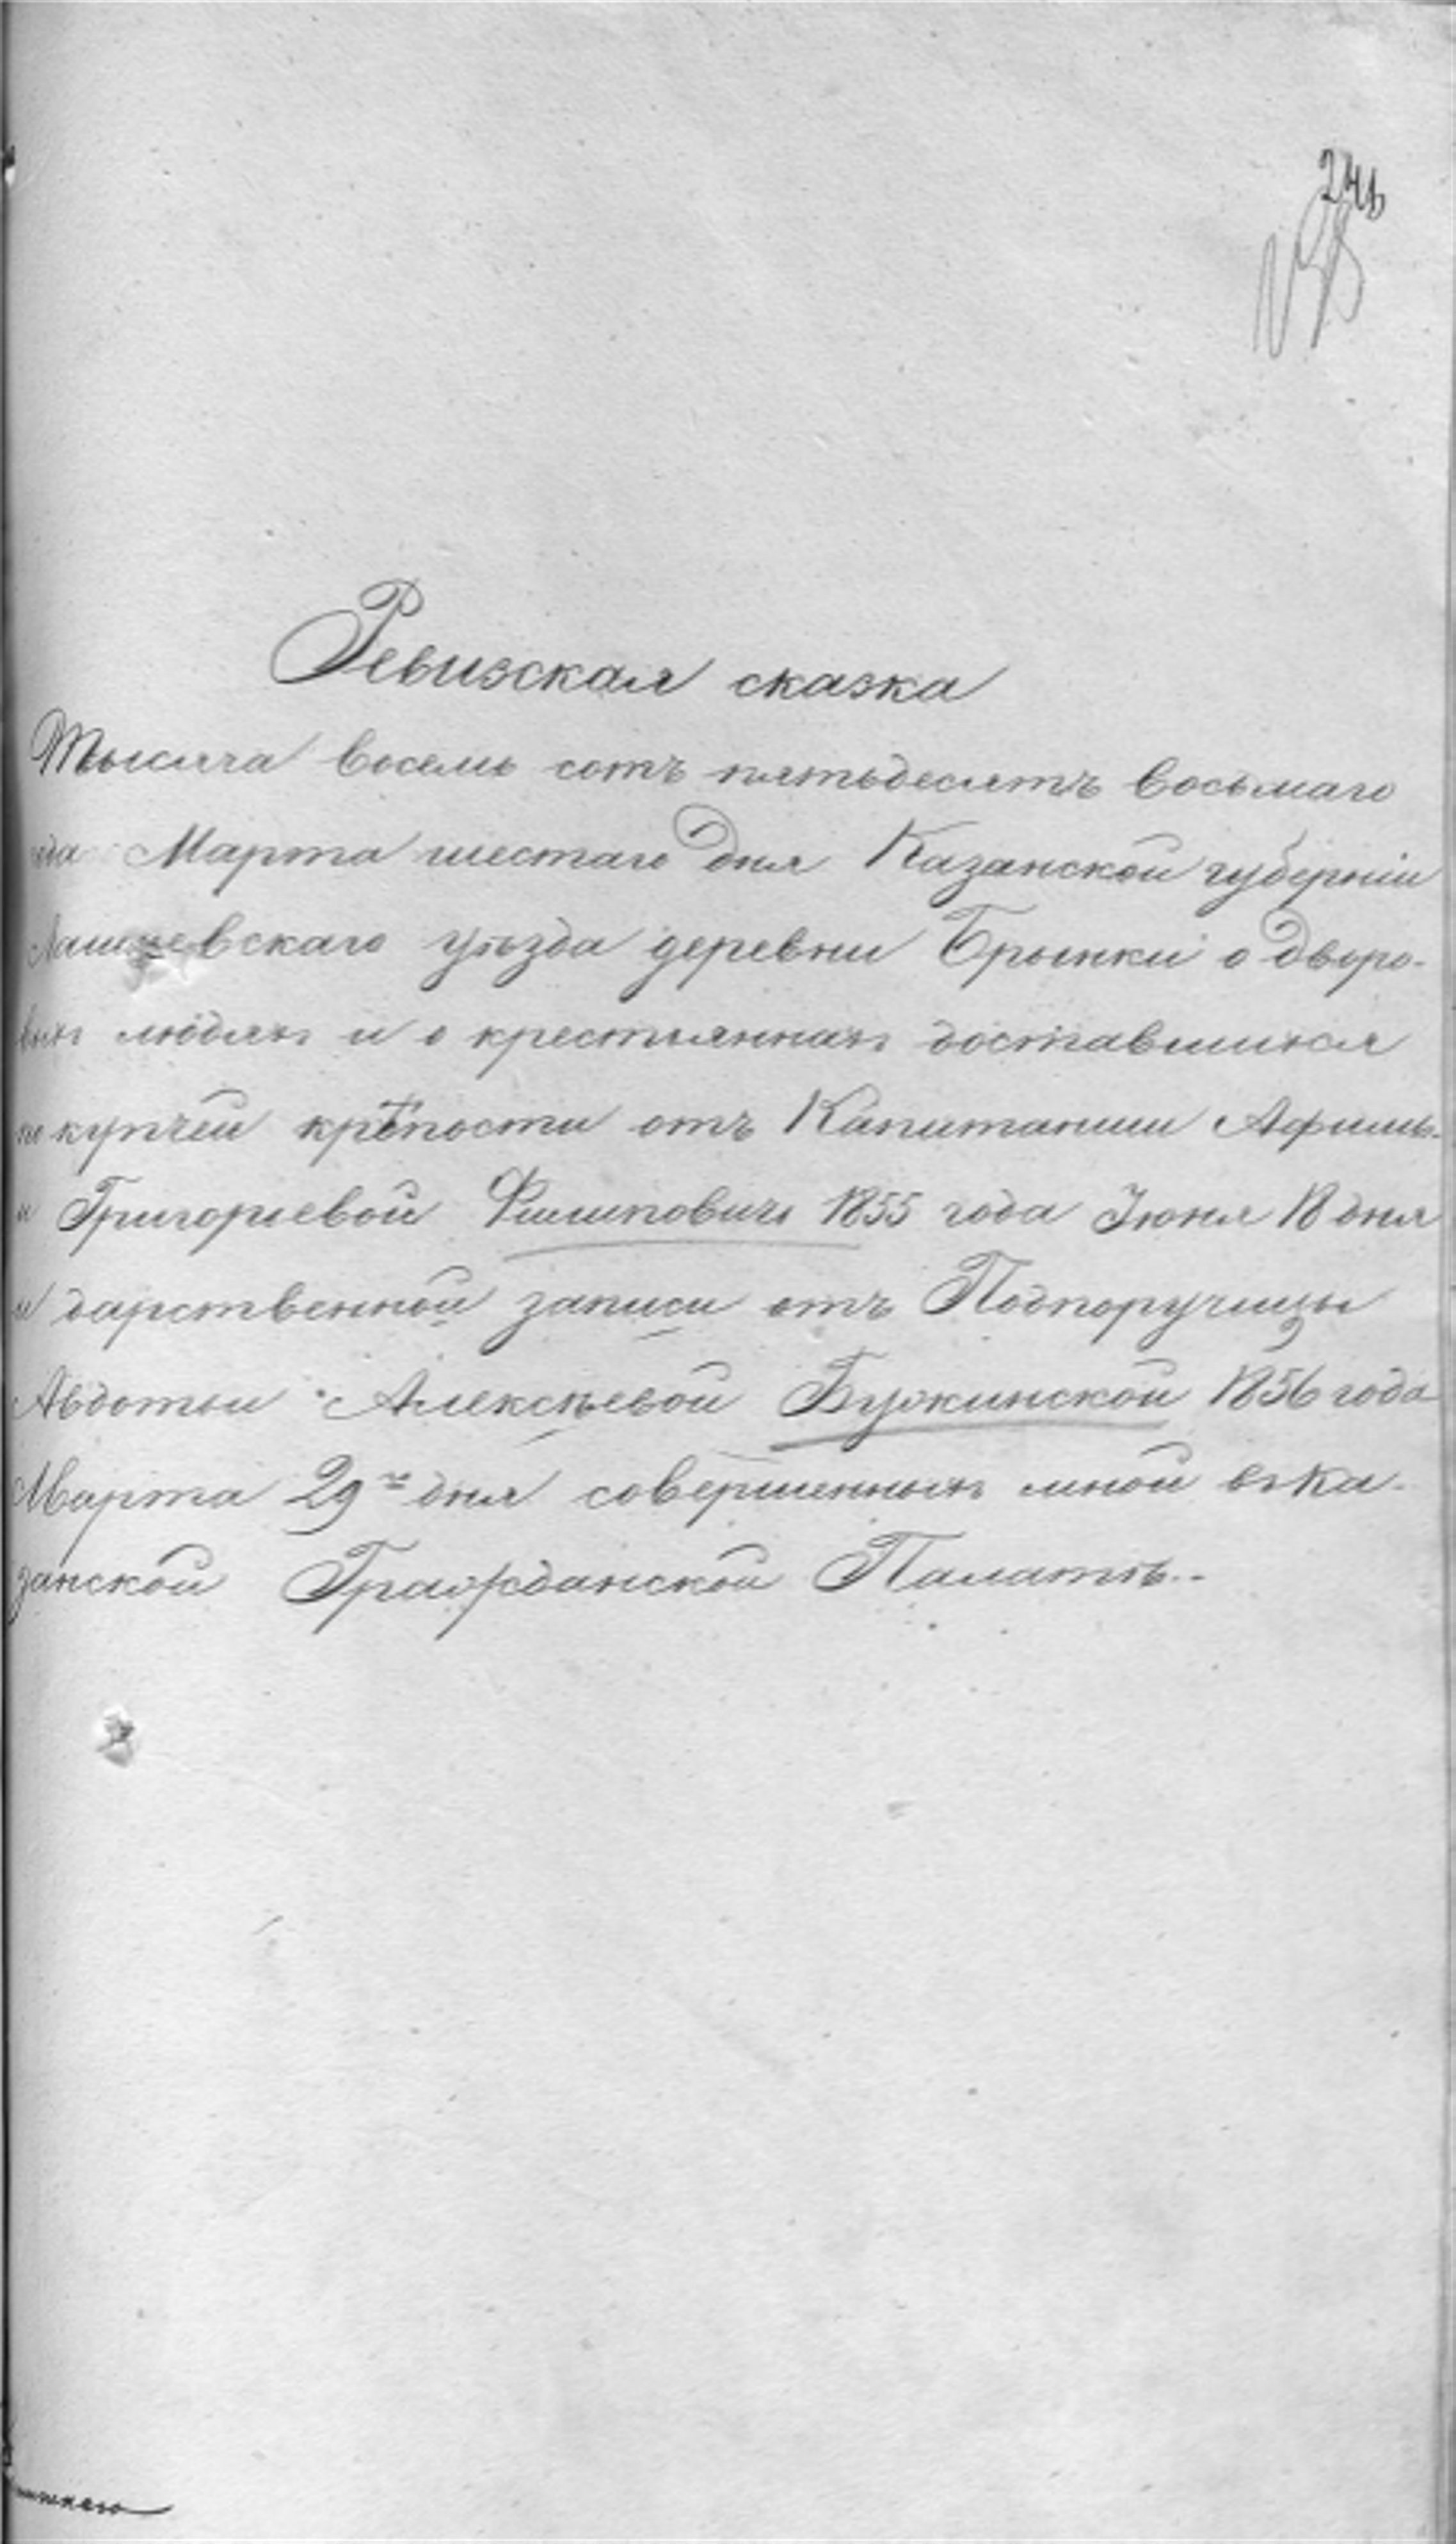 Ревизская сказка
Тысяча восемь сотъ пятьдесятъ восьмаго
Марта шестаго дня Казанской губерніи
Лаишевскаго уѣзда деревни Брынки о дворо-
людяхъ и о крестьяннахъ доставшихся
по купчей крѣпости отъ Капитанши Афимь-
и Григорьевой Филиповичъ 1855 года Іюня 18 дня
и дарственной записи отъ Подпоручицы
Авдотьи Алексѣевой 1856 года
Марта 29го дня совершеннымъ мной въ Ка-
занской Гражданской Палатѣ..